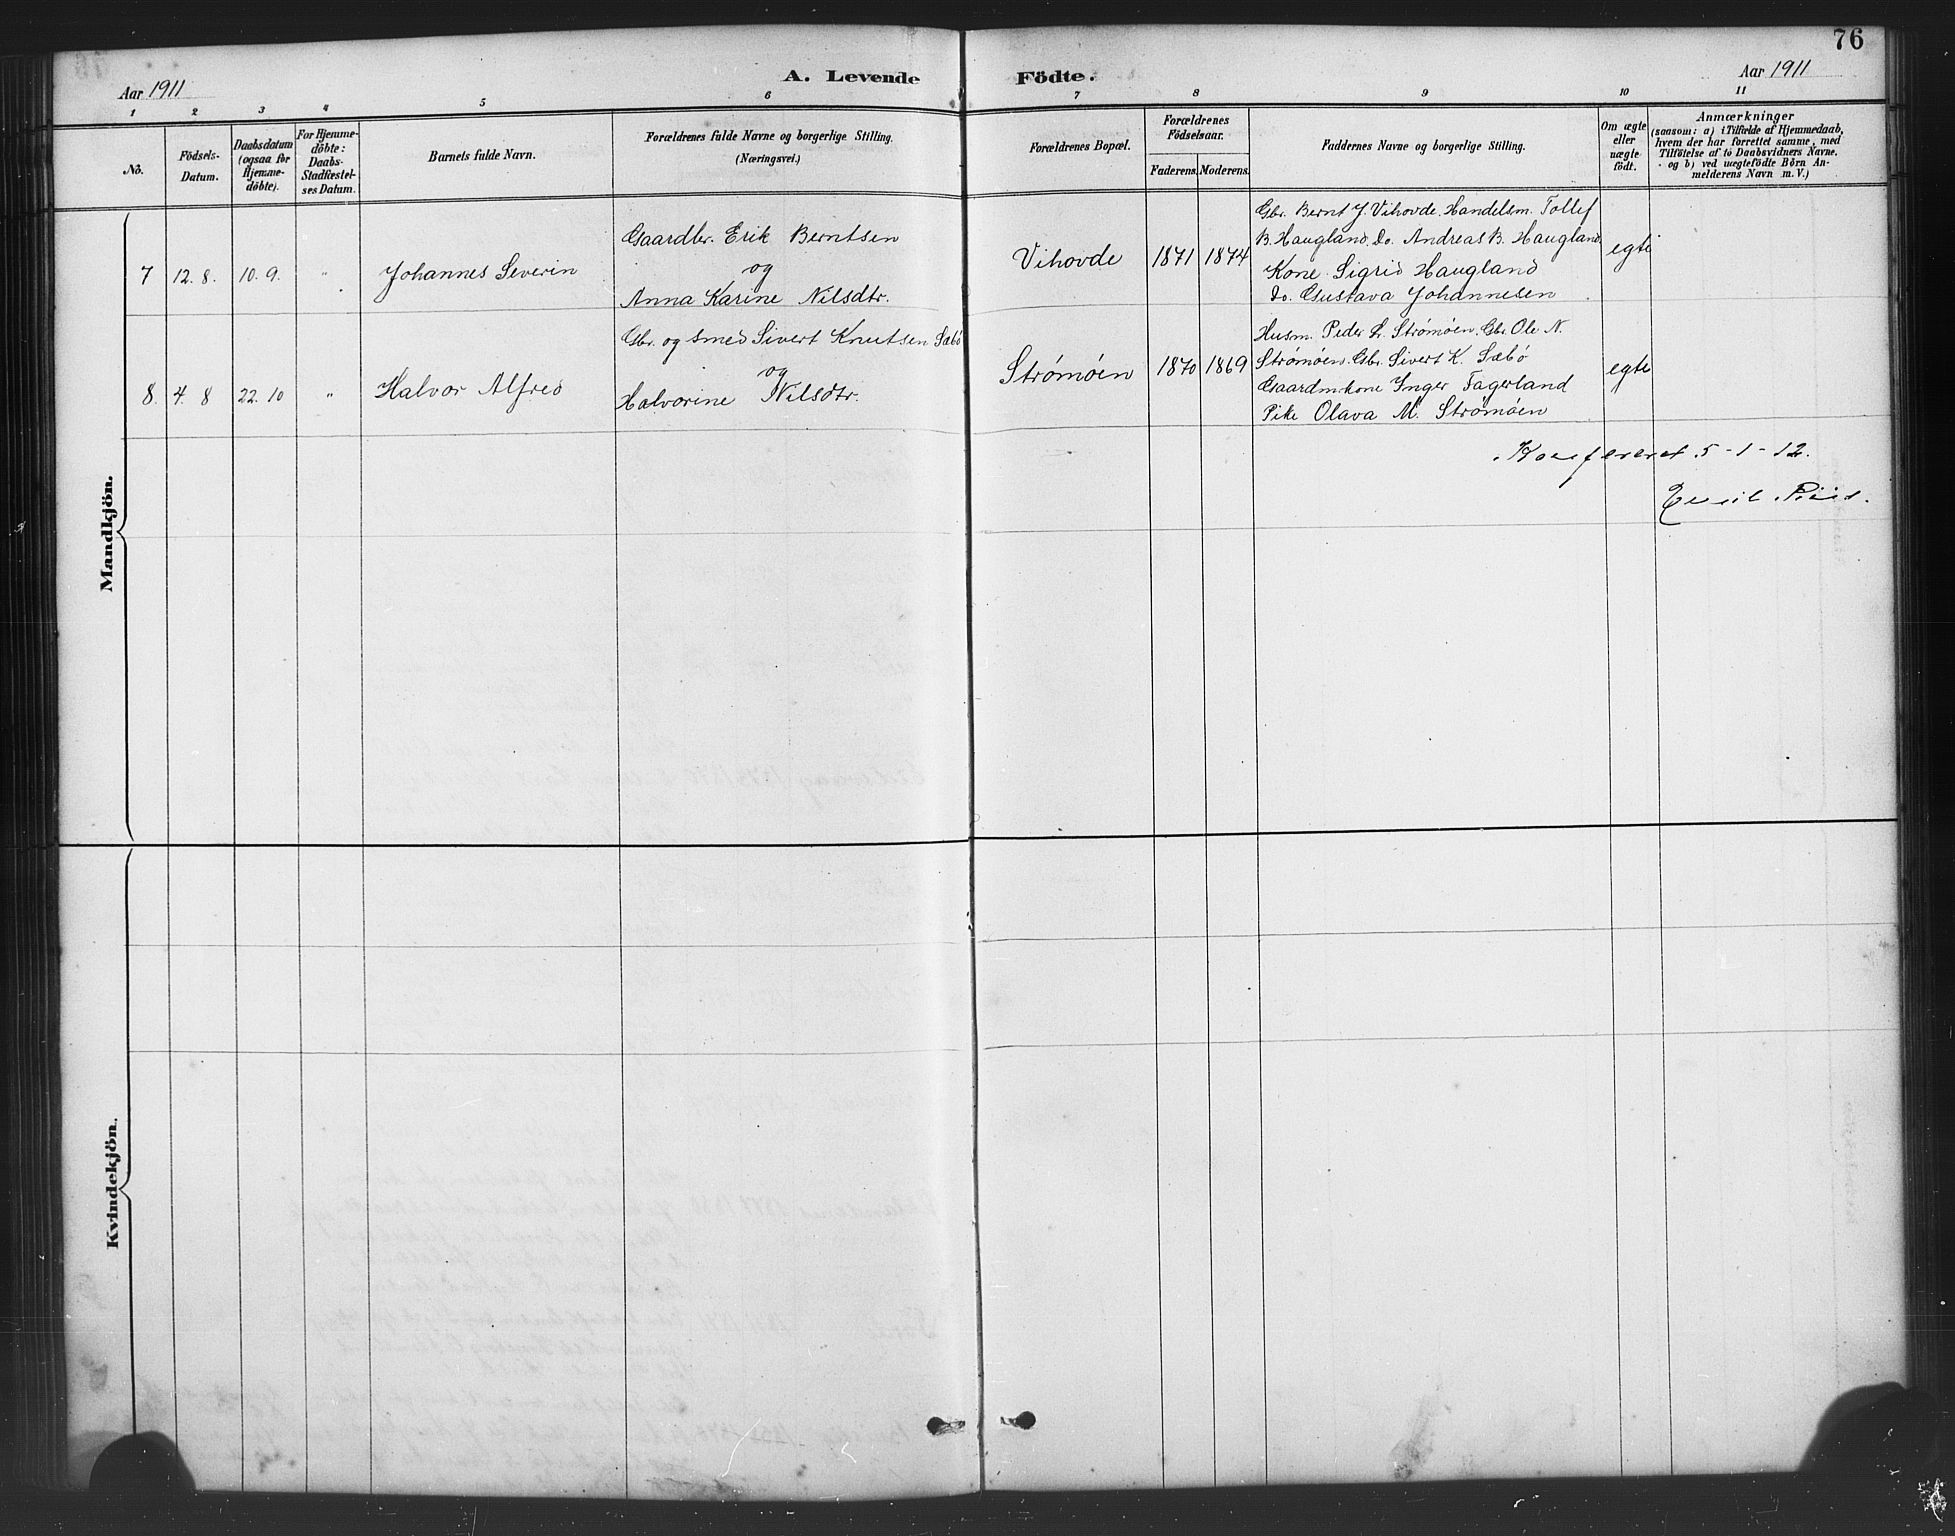 76
A. Levende Födte.
Aar 1911
Aar 1911
1 2 3 4 5 6 7 8 9 10 11
No.
Födsels-
Datum.
Daabsdatum
(ogsaa for
Hjemme-
döbte).
For Hjemme-
döbte:
Daabs-
Stadfæstel-
ses Datum.
Barnets fulde Navn.
Forældrenes fulde Navne og borgerlige Stilling.
(Næringsvei.)
Forældrenes Bopæl.
Forældrenes
Födselsaar.
Faderens. Moderens.
Faddernes Navne og borgerlige Stilling.
Om ægte
eller
uægte
födt.
Anmærkninger
(saasom: a) i Tilfælde af Hjemmedaab,
hvem der har forrettet samme, med
Tilföielse af to Daabsvidners Navne.
og b) ved uegtefödte Börn An-
melderens Navn m. V.)
Mandkjön.
7 12. 8. 10. 9. "
Johannes Severin
Gaardbr. Erik Berntsen
og
Anna Karine Nilsdtr.
Vihovde 1871 1874
Gbr. Bernt J. Vihovde. Handelsm. Tollef
B. Haugland. Do. Andreas B. Haugland.
Kone Sigrid Haugland
do. Gustava Johannesen
egte
8. 4. 8 22. 10 "
Halvor Alfred
Gbr. og smed Sivert Knutsen Sæbö
og
Halvorine Nilsdtr.
Strømøen 1870 1869
Husm. Peder Strømöen. Gbr. Ole N.
Strømøen. Gbr. Sivert K. Sæbö
Gaardm.kone Inger Fagerland
Pike Olava M. Strømöen
egte
Konfereret 5-1-12.
Emil
Kvindekjön.